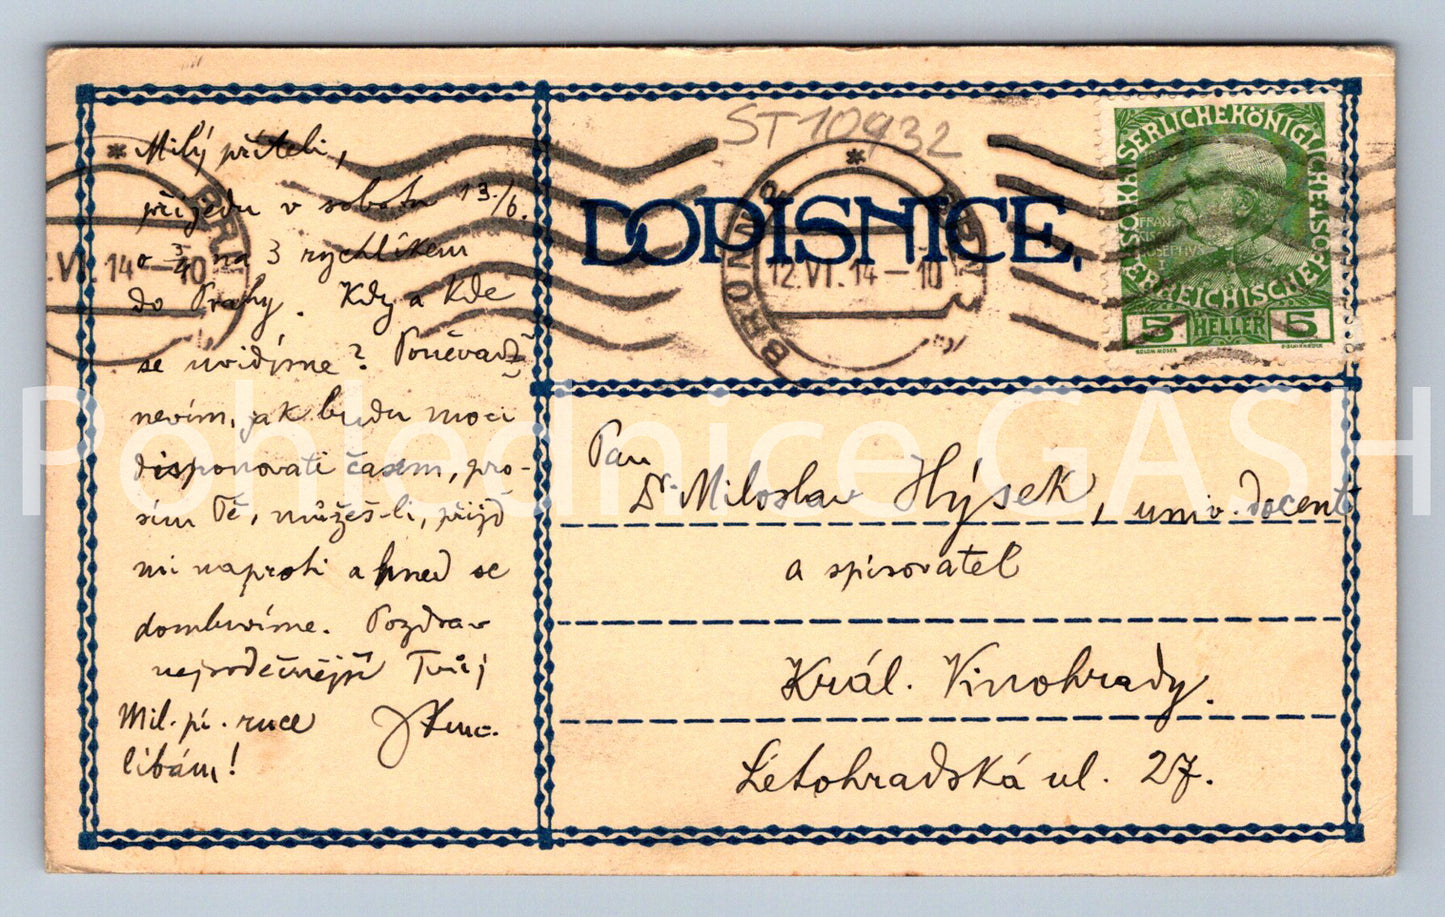 Milý příteli,
přijedu v sobotu 13./6.
o ¾ na 3 rychlíkem
do Prahy. Kdy a kde
se uvidíme? Poněvadž
nevím, jak budu moci
disponovati časem, pro-
sím Tě, můžeš-li, přijď
mi naproti a hned se
domluvíme. Pozdrav
nejsrdečnější Tvůj
Mil. pí. ruce
líbám!
ST10932
DOPISNICE.
BRÜNN
BRNO
12.VI.14-10
KAISERLICHE KÖNIGLICHE ÖSTERREICHISCHE
FRANZ JOSEPHVS I
5 HELLER 5
KOLOM. MOSER
Pan
Dr. Miloslav Hýsek, univ. docent
a spisovatel
Král. Vinohrady.
Letohradská ul. 27.
Pohlednice GASH